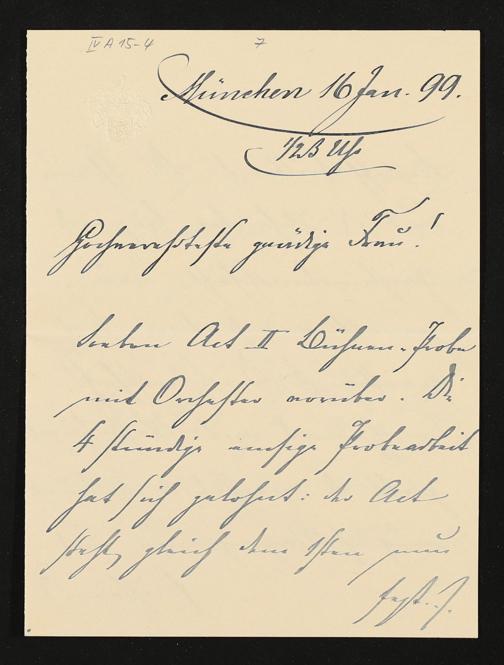 IV A 15-4 7
München 16 Jan. 99.
1/2 3 Uhr
Hochverehrteste gnädige Frau!
Soeben Act II Bühnen-Probe
mit Orchester vorüber. Die
4 stündige emsige Probearbeit
hat sich gelohnt: der Act
steht, gleich dem 1sten nun
fest.